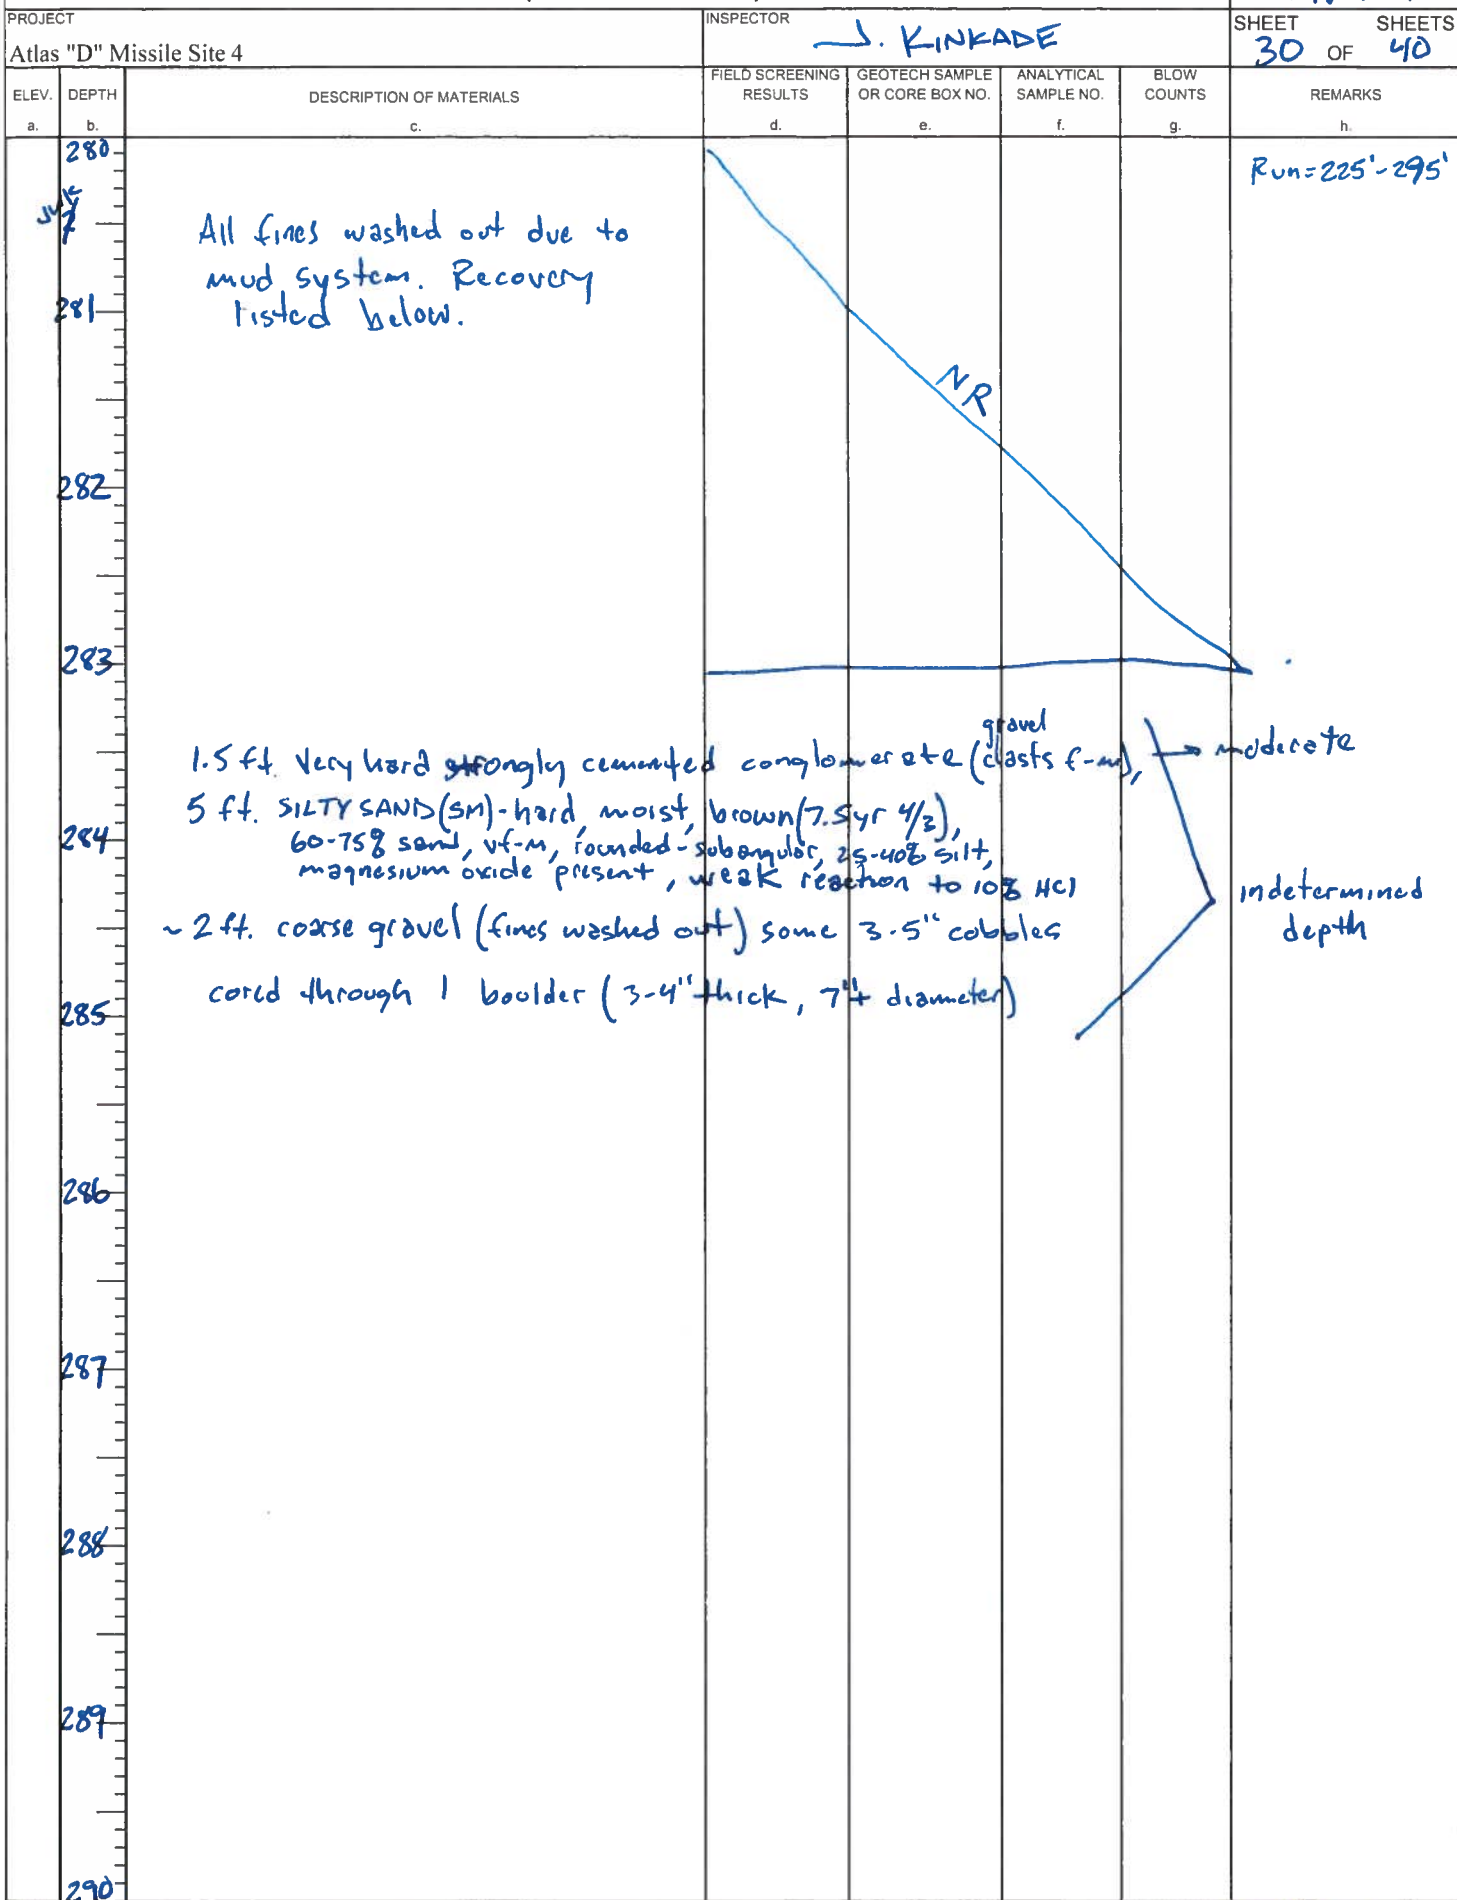 PROJECT
Atlas "D" Missile Site 4
INSPECTOR
J. KINKADE
SHEET SHEETS
30 OF 40
ELEV. DEPTH DESCRIPTION OF MATERIALS FIELD SCREENING RESULTS GEOTECH SAMPLE OR CORE BOX NO. ANALYTICAL SAMPLE NO. BLOW COUNTS REMARKS
a. b. c. d. e. f. g. h.
280
Run=225'-295'
All fines washed out due to
mud system. Recovery
281
listed below.
NR
282
283
gravel
1.5 ft. Very hard strongly cemented conglomerate (clasts f-m), → moderate
5 ft. SILTY SAND (SM)-hard, moist, brown (7.5yr 4/3),
284
60-75% sand, vf-m, rounded-subangular, 25-40% silt,
magnesium oxide present, weak reaction to 10% HCl
indetermined
depth
~2 ft. coarse gravel (fines washed out) some 3-5" cobbles
cored through 1 boulder (3-4" thick, 7"+ diameter)
285
286
287
288
289
290